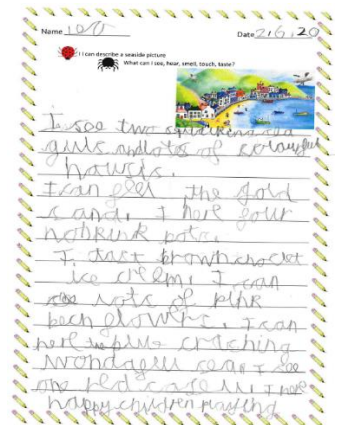 Name Leo
Date 2.6.20
I can describe a seaside picture
What can I see, hear, smell, touch, taste?
I see two squacking sea
gulls and lots of colouyful
housis.
I can feel the gold
sand. I here four
pots.
I tast brown choclet
ice creem. I can
see lots of pink
pech flowers. I can
here up crashing
sea. I see
one red I here
happy children playing